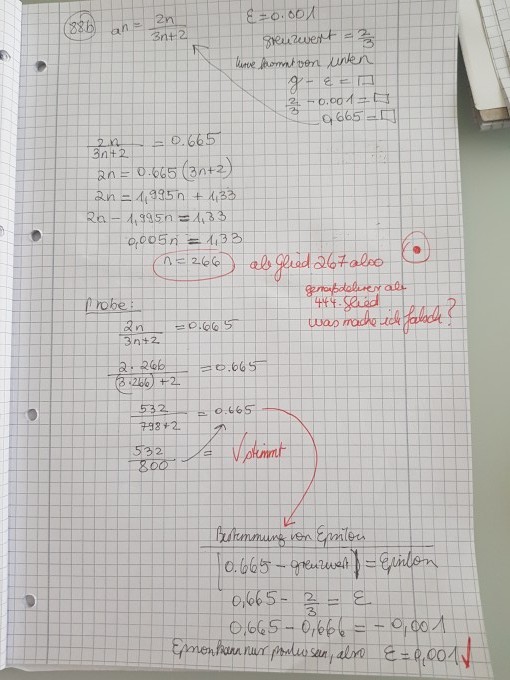 88b) an = 2n / 3n+2
ε = 0.001
grenzwert = 2/3
kurve kommt von unten
g - ε = □
2/3 - 0.001 = □
0,665 = □
2n / 3n+2 = 0.665
2n = 0.665 (3n+2)
2n = 1,995n + 1,33
2n - 1,995n = 1,33
0,005n = 1,33
n = 266
ab Glied 267 also
444. Glied
was mache ich falsch?
Probe:
2n / 3n+2 = 0.665
2·266 / (3·266)+2 = 0.665
532 / 798+2 = 0.665
532 / 800 = √ stimmt
Bestimmung von Epsilon
|0.665 - grenzwert| = Epsilon
0,665 - 2/3 = ε
0.665 - 0,666 = - 0,001
Epsilon kann nur positiv sein, also ε = 0,001 √